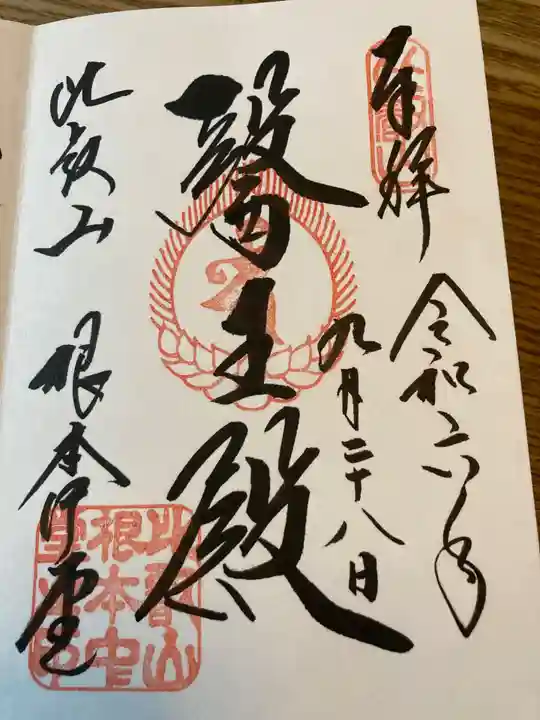 奉拝
令和六年
九月二十八日
醫王殿
比叡山 根本中堂
比叡山
根本中
堂